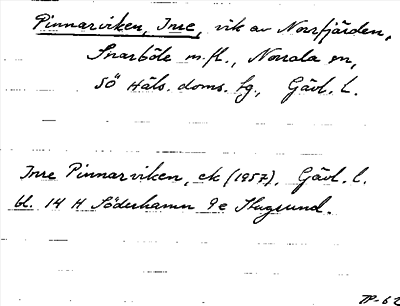 Pinnarviken, Inre, vik av Norrfjärden,
Snarböle m.fl., Norrala sn,
SÖ Häls. doms. fg., Gävl. L.
Inre Pinnarviken, ek (1957). Gävl. l.
bl. 14 H Söderhamn 9e Skugsund.
TP-62